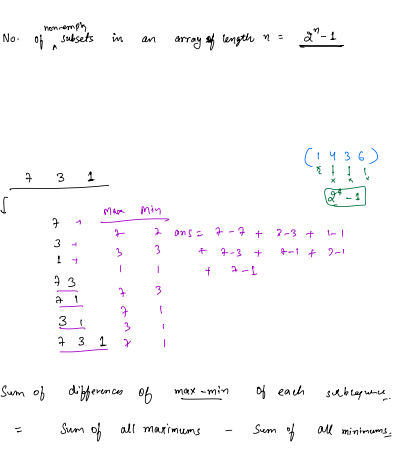 No. of non-empty subsets in an array of length n = 2^n - 1
(1 4 3 6)
2 x x x
2^4 - 1
7 3 1
Max Min
7 → 7 7
3 → 3 3
1 → 1 1
7 3 7 3
7 1 7 1
3 1 3 1
7 3 1 7 1
ans = 7-7 + 3-3 + 1-1
+ 7-3 + 7-1 + 3-1
+ 7-1
Sum of differences of max-min of each subsequence.
= Sum of all maximums - Sum of all minimums.